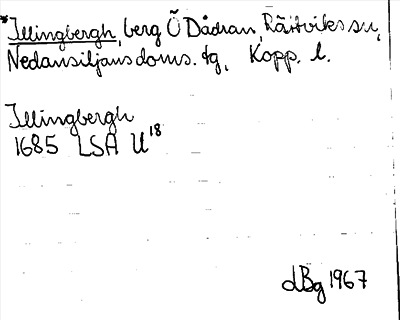 *Illingbergh, berg Ö Dådran, Rättviks sn,
Nedansiljans doms. tg, Kopp. l.
Illingbergh
1685 LSA U18
dBg 1967